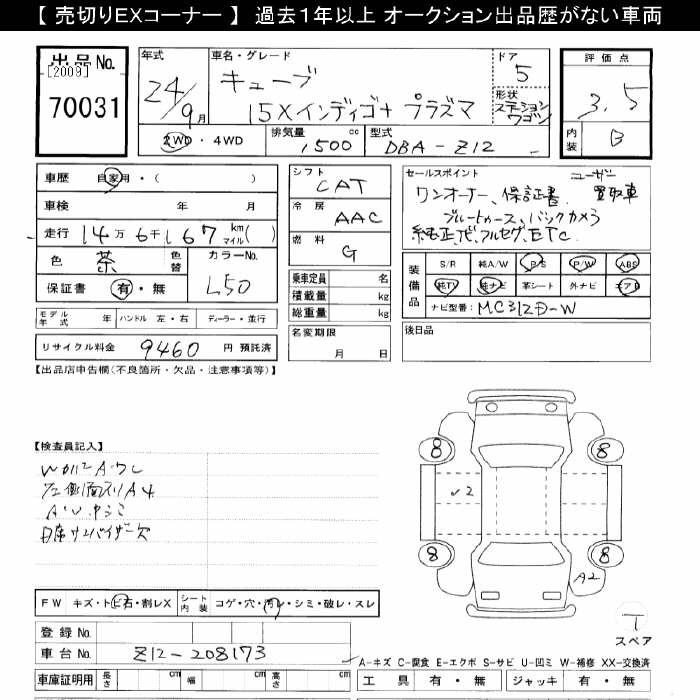 【 売切りEXコーナー 】 過去１年以上 オークション出品歴がない車両
出品No.
[2009]
70031
年式
24/9月
車名・グレード
キューブ
15Xインディゴ+プラズマ
ドア
5
形状
ステーションワゴン
2WD ・ 4WD
排気量
1500 cc
型式
DBA-Z12
評価点
3.5
内装
B
車歴 自家用・( )
車検 年 月
走行 14万6千167 km マイル( )
色 茶 色替 カラーNo.
L50
保証書 有・無
モデル年式 年 ハンドル 左・右 ディーラー・並行
リサイクル料金 9460 円 預託済
シフト
CAT
冷房
AAC
燃料
G
乗車定員 名
積載量 kg
総重量 kg
名変期限
月 日
セールスポイント
ユーザー買取車
ワンオーナー、保証書
ブルートゥース、バックカメラ
純正ナビ、フルセグ、ETC
装備品
S/R 純A/W P/S P/W ABS
純TV 純ナビ 革シート 外ナビ エアB
ナビ型番: MC312D-W
後日品
【出品店申告欄(不良箇所・欠品・注意事項等)】
【検査員記入】
A4
サンバイザー欠
FW キズ・トビ石・割レX シート内装 コゲ・穴・汚レ・シミ・破レ・スレ
登録No.
車台No. Z12-208173
車庫証明用 長さ cm 幅 cm 高さ cm
8
8
2
8
8
A2
T
スペア
A-キズ C-腐食 E-エクボ S-サビ U-凹ミ W-補修 XX-交換済
工具 有・無 ジャッキ 有・無